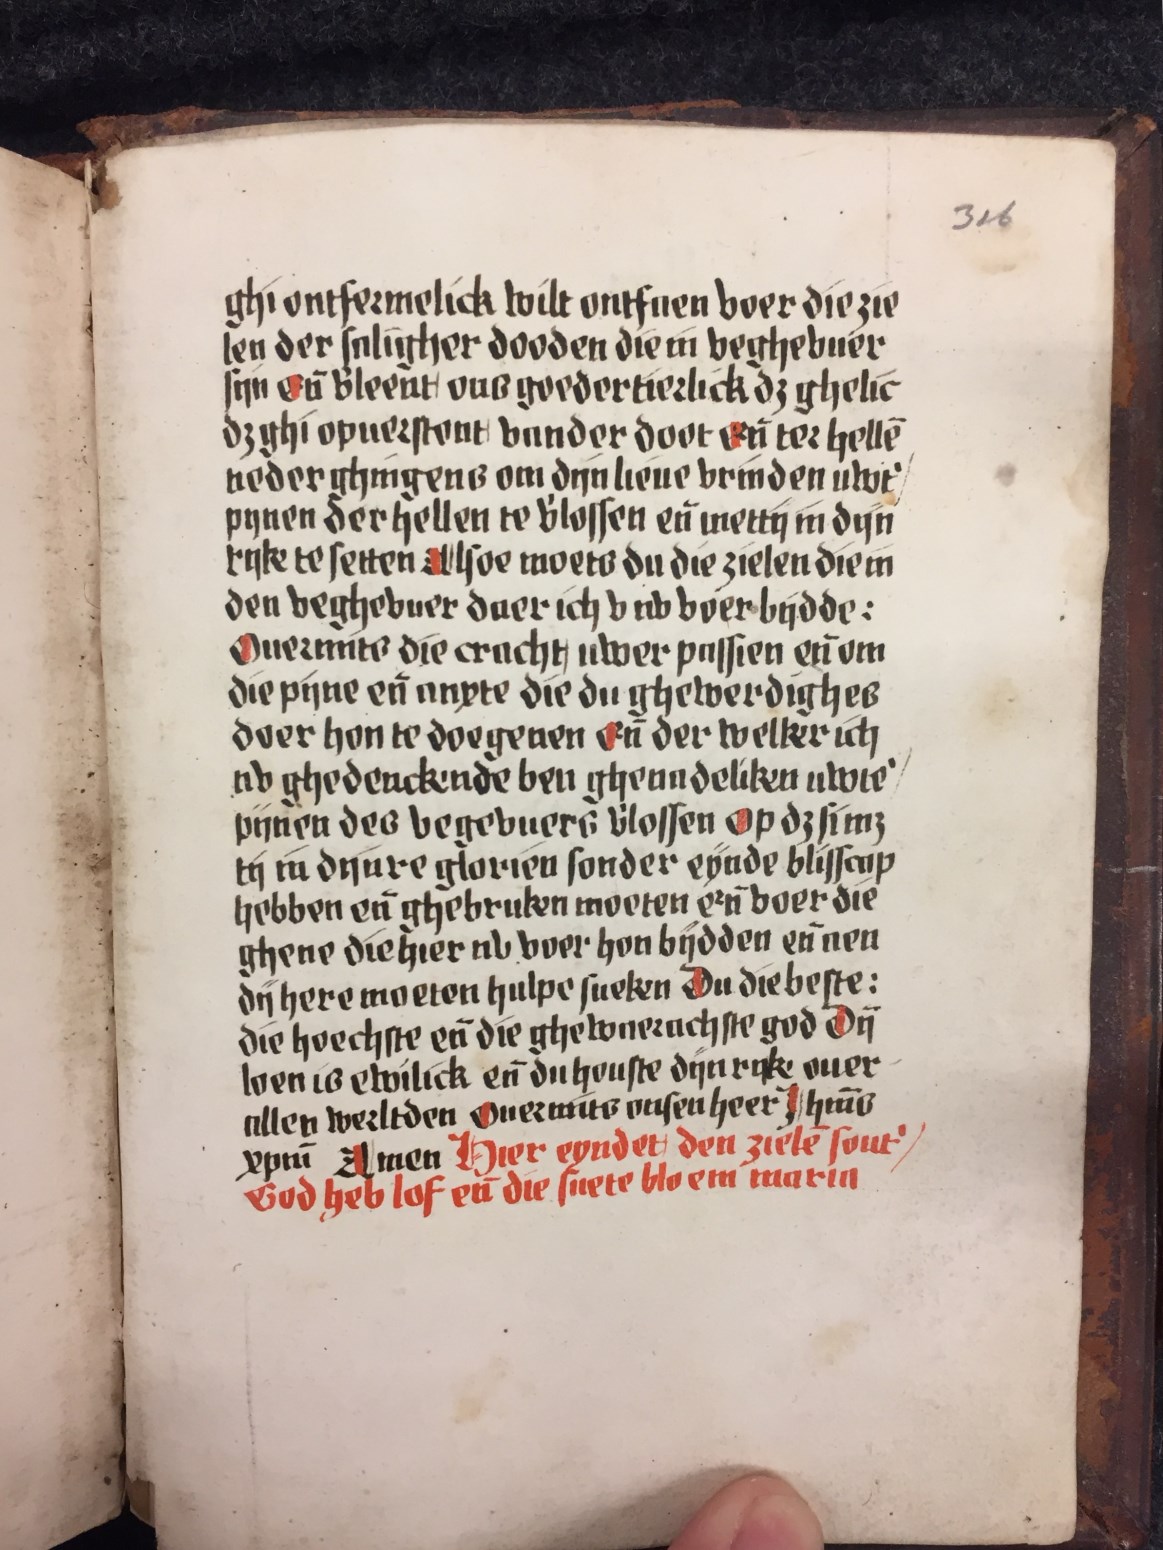 316
ghi ontfermelick wilt ontfaen voer die zie
len der saligher dooden die in veghevuer
sijn eñ v̓leent ons goedertierlick dz ghelic
dz ghi opuerstont vander doet eñ ter hellē
neder ghingens om dijn lieue vrinden uwt'
pijnen der hellen te v̓lossen eñ mettij in dijn
rijke te setten Alsoe moets du die zielen die in
den veghevuer daer ich v nv voer bijdde:
Ouermits die cracht uwer passien eñ om
die pijne eñ anxte die du ghewerdighes
voer hon te doegenen Eñ der welker ich
nv ghedenckende ben ghenadeliken uwte'
pijnen des vegevuers v̓lossen Op dz si mz
tij in dijnre glorien sonder eynde blisscap
hebben eñ ghebruken moeten eñ voer die
ghene die hier nv voer hon bijdden eñ aen
dij here moeten hulpe sueken Du die beste:
die hoechste eñ die ghewaerachste god Dij
wen is ewilick eñ du houste dijn rijke ouer
allen werltden Ouermits onsen heer Jhm̄s
xpm̄ Amen Hier eyndet den zielē sont'
God heb lof eñ die suete bloem maria